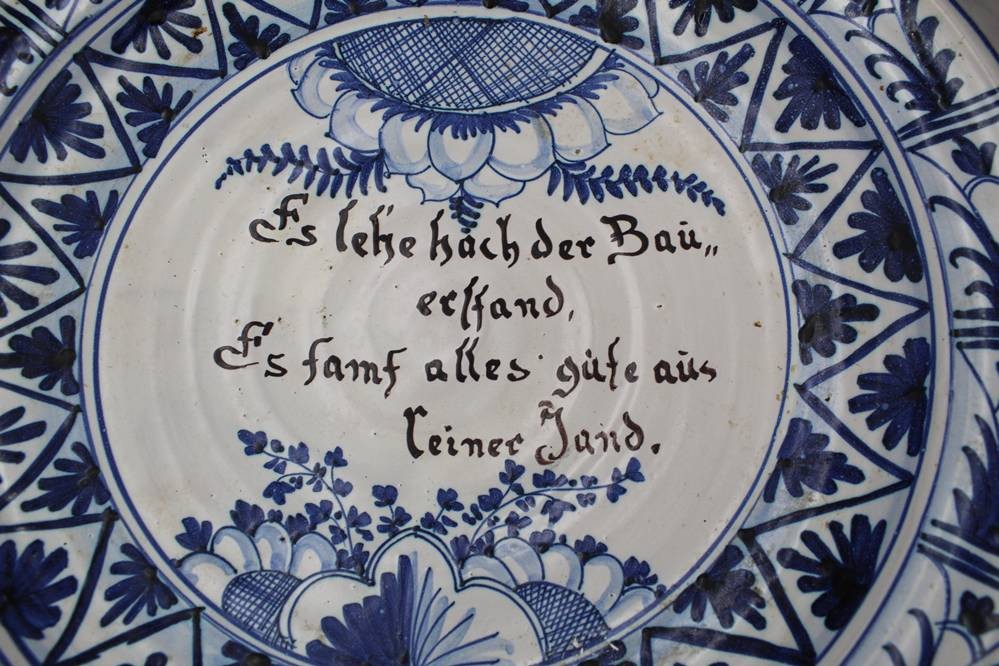 Es lehe hoch der Bau„
erstand,
Es kamt alles gute aus
seiner Hand.